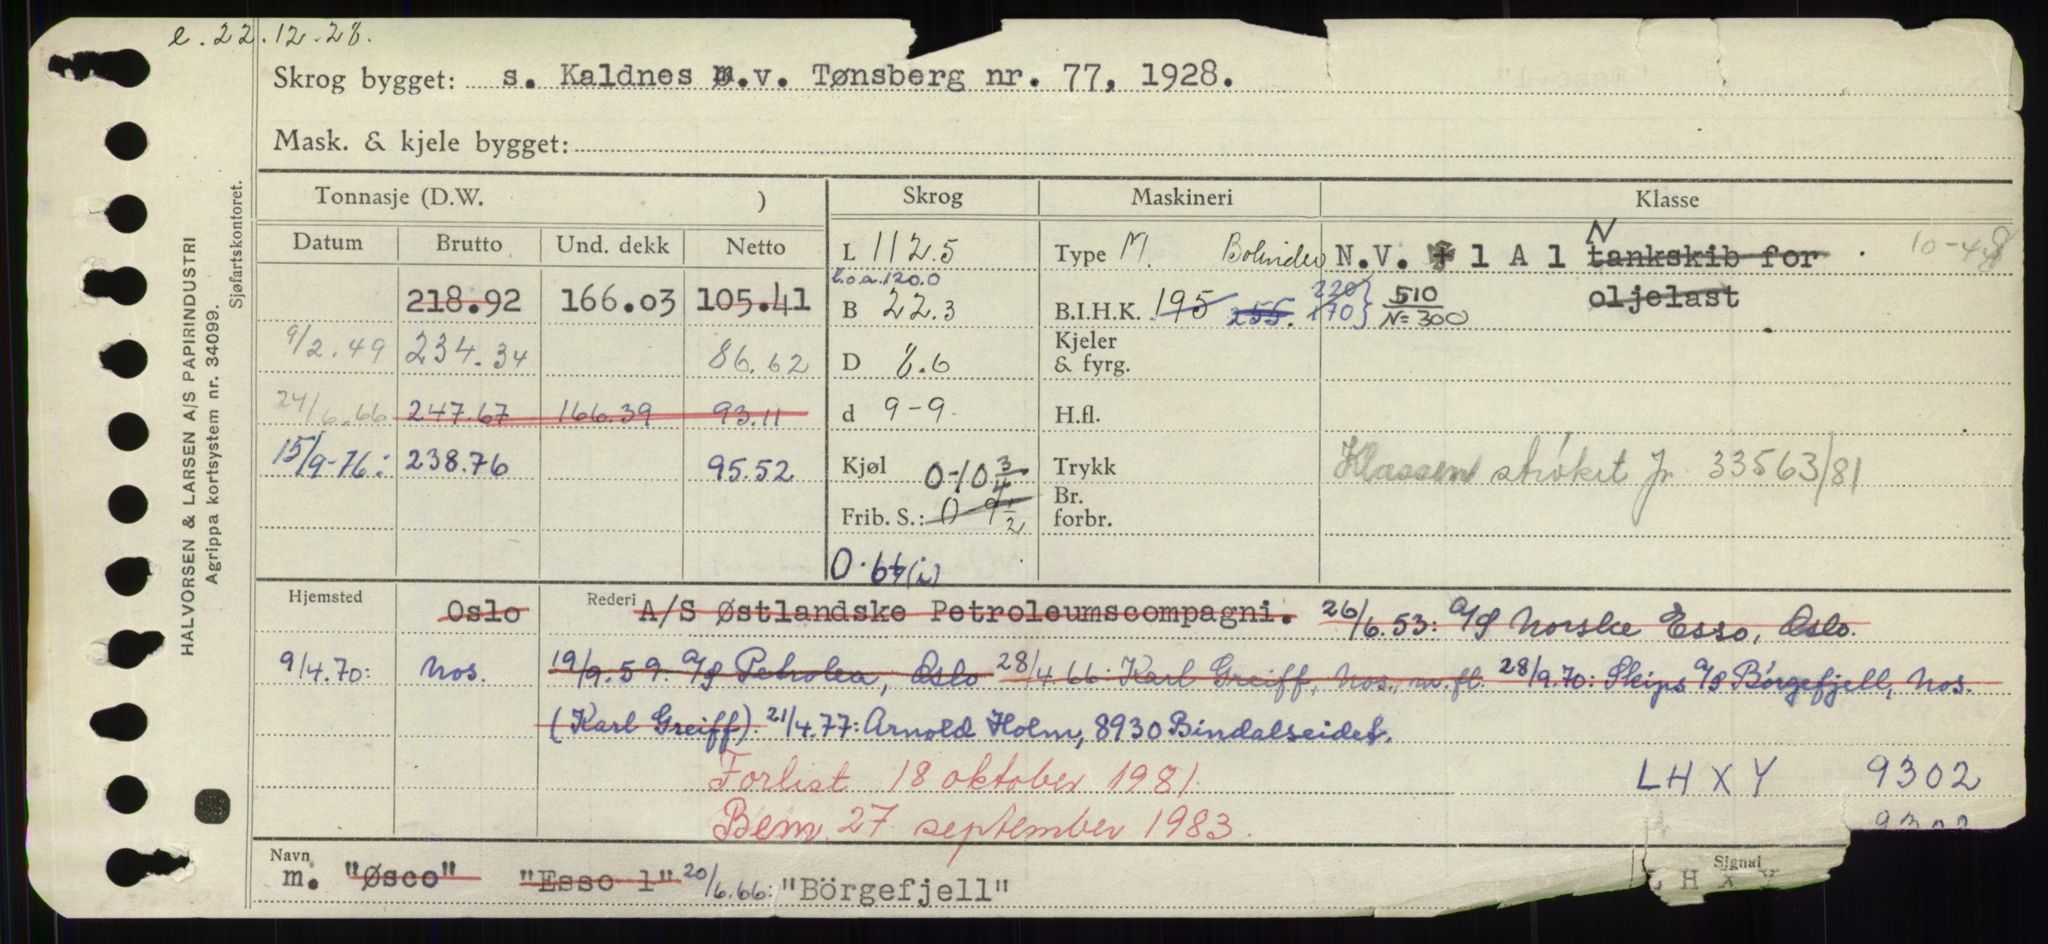 e. 22.12.28.
Skrog bygget: s. Kaldnes m.v. Tønsberg nr. 77, 1928.
Mask. & kjele bygget:
HALVORSEN & LARSEN A/S PAPIRINDUSTRI
Agrippa kortsystem nr. 34099.
Sjøfartskontoret.
Tonnasje (D.W. ) Skrog Maskineri Klasse
Datum Brutto Und. dekk Netto
L 112.5 Type M. Bolinder N.V. + 1 A 1 N tankskib for 10-48
l.o.a. 120.0
218.92 166.03 105.41 B 22.3 B.I.H.K. 195 255. 220 170 } 510 N= 300 oljelast
9/2.49 234.34 86.62 D 8.6 Kjeler & fyrg.
24/6.66 247.67 166.39 93.11 d 9-9. H.fl.
15/9-76: 238.76 95.52 Kjøl 0-10 3/4 Trykk Klassen strøket Jr 33563/81
Frib. S.: 0 9 1/2 Br. forbr.
0.6 (i)
Hjemsted Oslo Rederi A/S Østlandske Petroleumscompagni. 26/6.53: A/S Norske Esso, Oslo.
9/4.70: Nos. 19/9.59. A/S Petrolea, Oslo 28/4.66: Karl Greiff, Nos., m.fl. 28/9.70: Skips A/S Börgefjell, Nos.
(Karl Greiff). 21/4.77: Arnold Holm, 8930 Bindalseidet.
Forlist 18 oktober 1981. LHXY 9302
Bem. 27 september 1983.
9302
Navn Signal
m. "Øsco" "Esso 1" 20/6.66: "Börgefjell" L H X Y